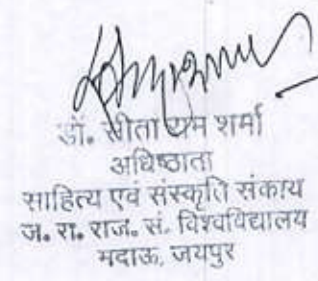 डॉ. सीता राम शर्मा
अधिष्ठाता
साहित्य एवं संस्कृति संकाय
ज. रा. राज. सं. विश्वविद्यालय
मदाऊ, जयपुर